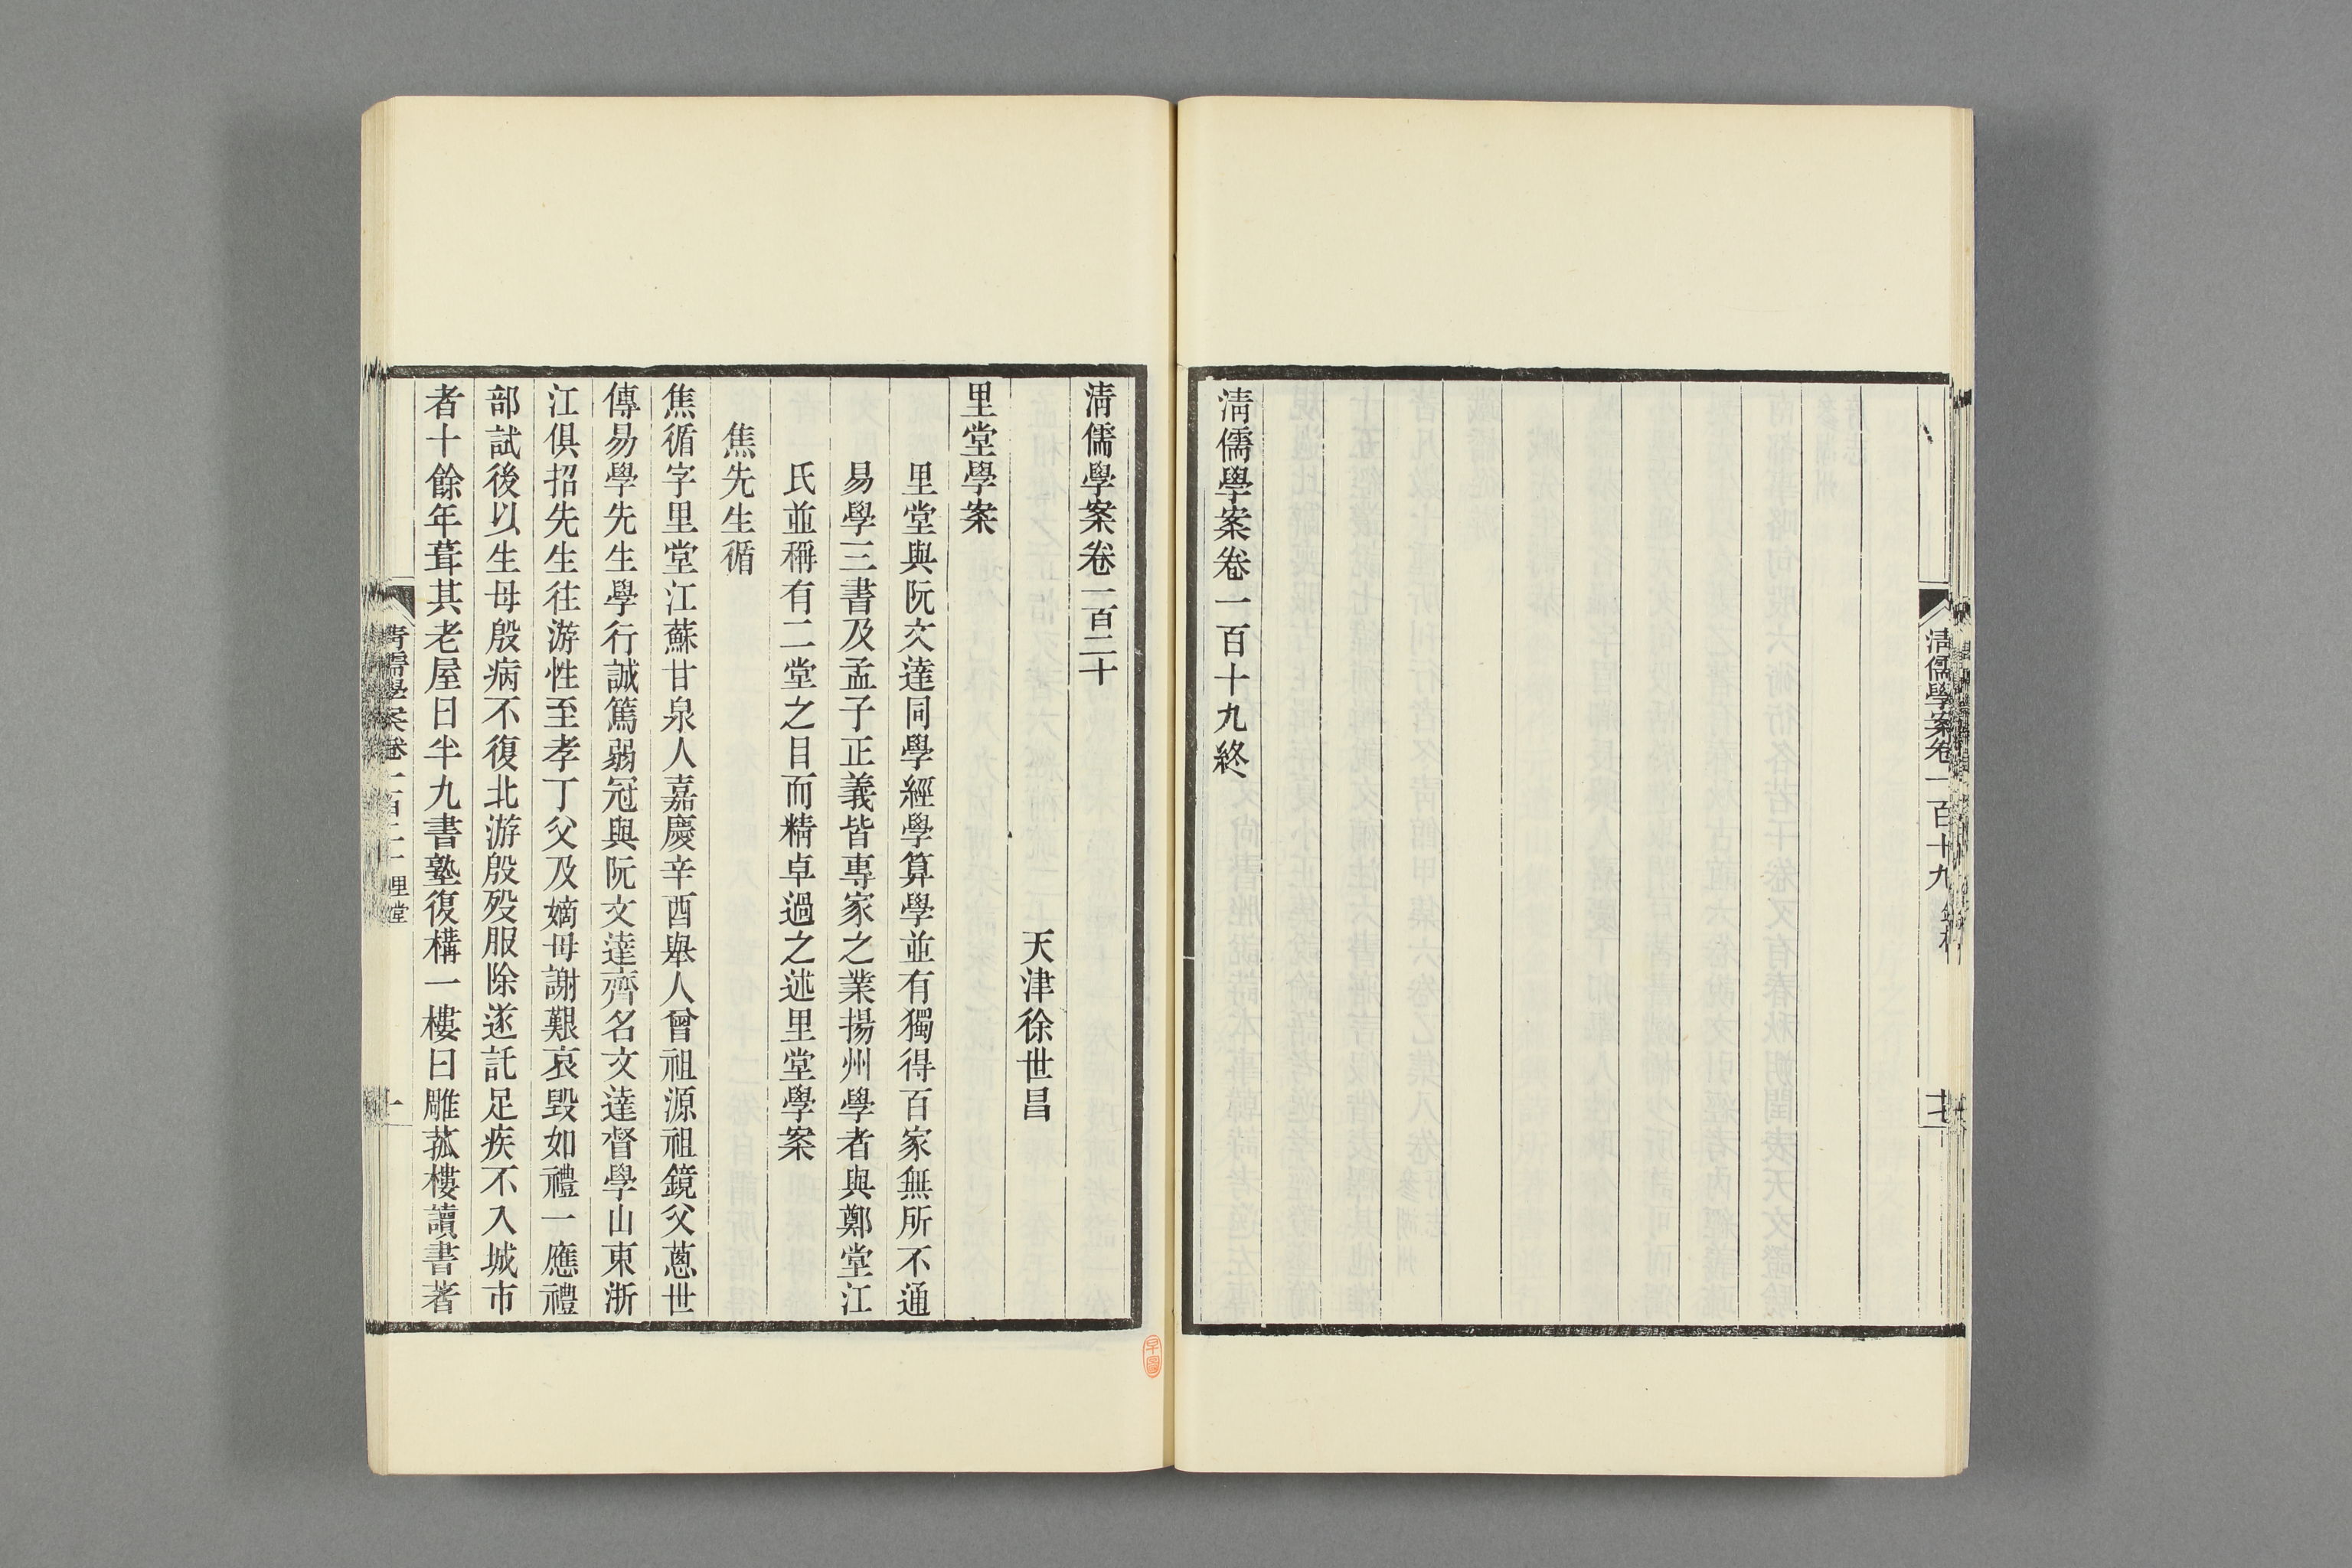 清儒學案卷一百十九
清儒學案卷一百十九終
清儒學案卷一百二十
天津徐世昌
里堂學案
里堂與阮文達同學經學算學並有獨得百家無所不通
易學三書及孟子正義皆專家之業揚州學者與鄭堂江
氏並稱有二堂之目而精卓過之述里堂學案
焦先生循
焦循字里堂江蘇甘泉人嘉慶辛酉舉人曾祖源祖鏡父蔥世
傳易學先生學行誠篤弱冠與阮文達齊名文達督學山東浙
江俱招先生往游性至孝丁父及嫡母謝艱哀毀如禮一應禮
部試後以生母殷病不復北游殷歿服除遂託足疾不入城市
者十餘年葺其老屋曰半九書塾復構一樓曰雕菰樓讀書著
清儒學案卷一百二十 里堂
一